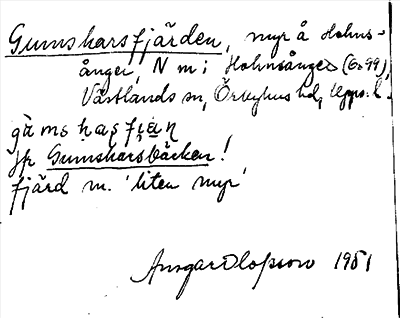 Gumsharsfjärden, myr å Holms-
ånger, N m i Holmsånger (Gs 99),
Västlands sn, Örbyhus hd, Upps. l.
gàmshaṣfi̯äṇ
jfr Gumsharsbäcken!
fjärd m. 'liten myr'
Ansgar Olofsson 1951